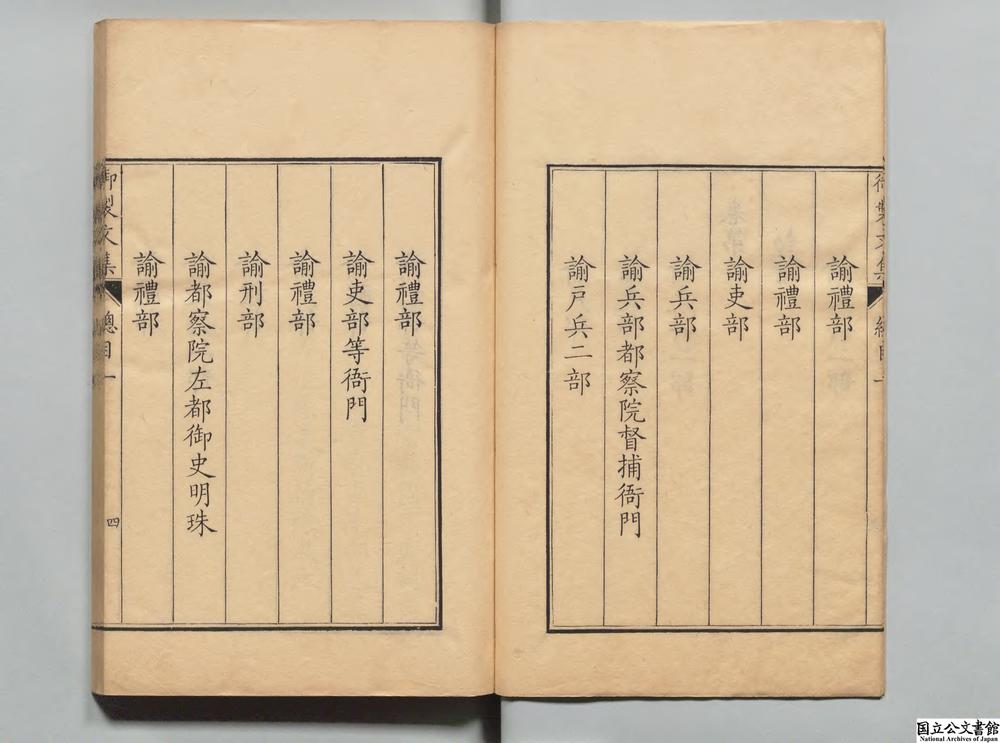 御製文集 總目一
諭禮部
諭禮部
諭吏部
諭兵部
諭兵部都察院督捕衙門
諭戶兵二部
諭禮部
諭吏部等衙門
諭禮部
諭刑部
諭都察院左都御史明珠
諭禮部
御製文集 總目一 四
国立公文書館
National Archives of Japan